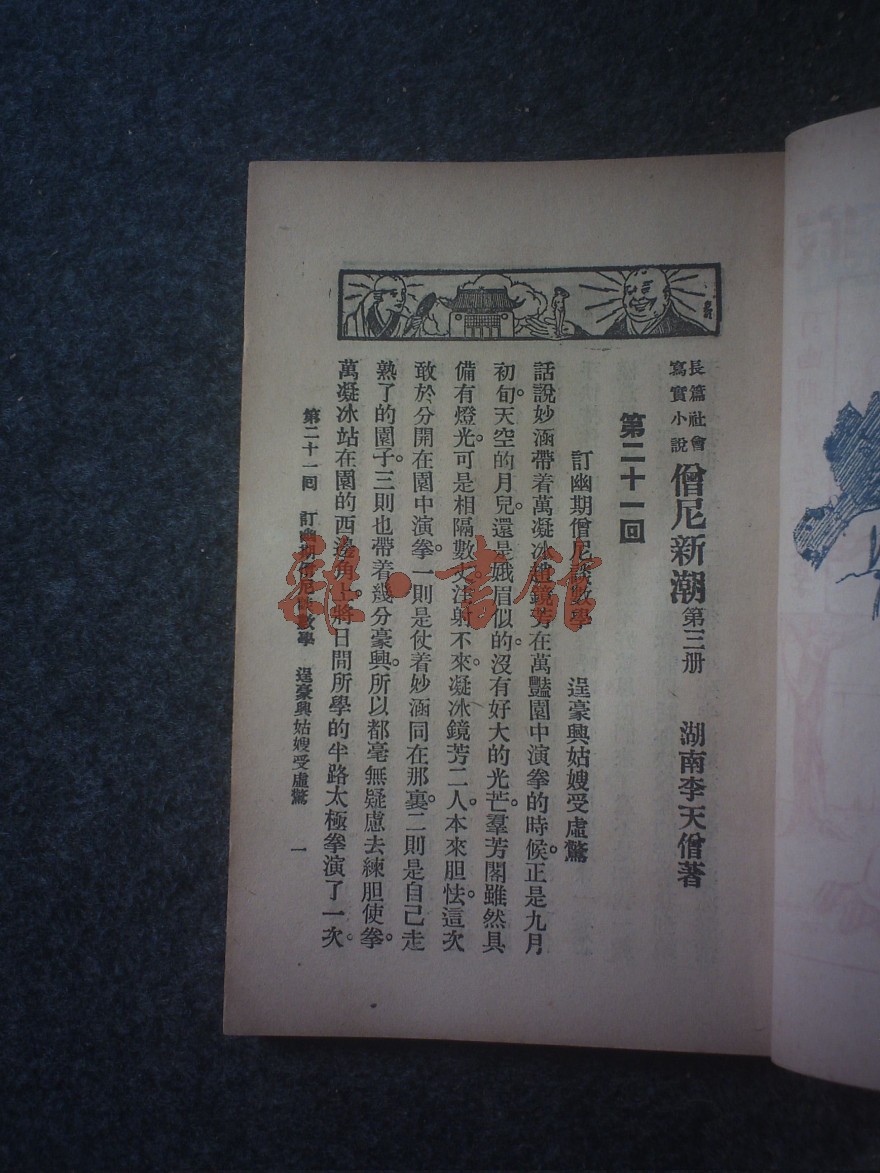 長篇社會
寫實小說
僧尼新潮 第三册 湖南李天僧著
第二十一回
訂幽期僧尼談數學 逞豪興姑嫂受虛驚
話說妙涵帶着萬凝冰趙鏡芳在萬豔園中演拳的時候。正是九月
初旬天空的月兒。還是娥眉似的。沒有好大的光芒。羣芳閣雖然具
備有燈光。可是相隔數丈。注射不來。凝冰鏡芳二人。本來胆怯。這次
敢於分開在園中演拳。一則是仗着妙涵同在那裏。二則是自己走
熟了的園子。三則也帶着幾分豪興。所以都毫無疑慮去練胆使拳。
萬凝冰站在園的西邊角上。將日間所學的半路太極拳演了一次
第二十一回 訂幽期僧尼談數學 逞豪興姑嫂受虛驚 一
雜·書館